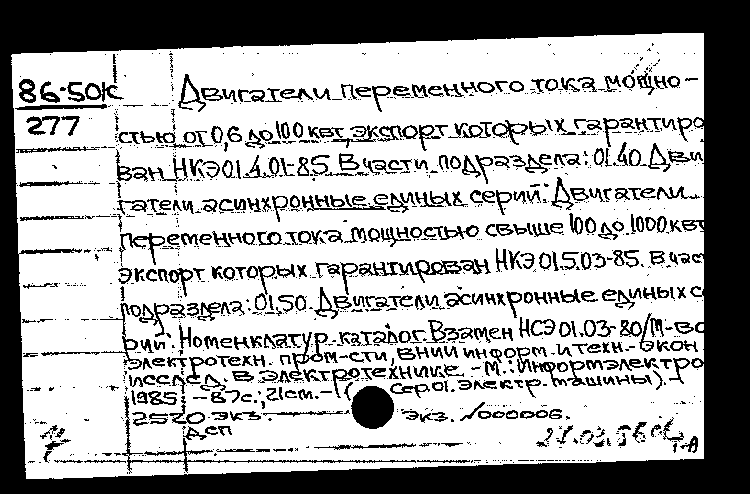 86-50к
277
Двигатели переменного тока мощно-
стью от 0,6 до 100 квт, экспорт которых гарантиро
ван НКЭ 01.4.01-85. В части подраздела: 01.40 Дви
гатели асинхронные единых серий. Двигатели
переменного тока мощностью свыше 100 до 1000 квт
экспорт которых гарантирован НКЭ 01.5.03-85. В час
подраздела: 01.50 Двигатели асинхронные единых с
рий: Номенклатур. каталог. Взамен НСЭ 01.03-80/М-во
электротехн. пром-сти, ВНИИ информ. и техн.-экон
исслед. в электротехнике. -М.: Информэлектро
1985. -87с.; 21см. -( Сер.01. Электр. машины). -
2520 экз. экз. №000006.
ДСП
Т-А